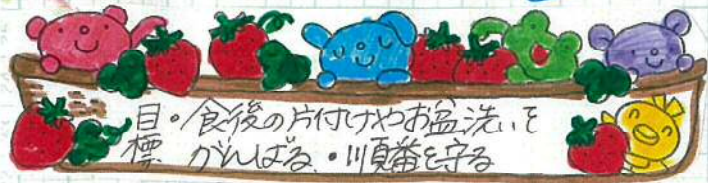 目標
・食後の片付けやお盆洗いを
がんばる ・順番を守る